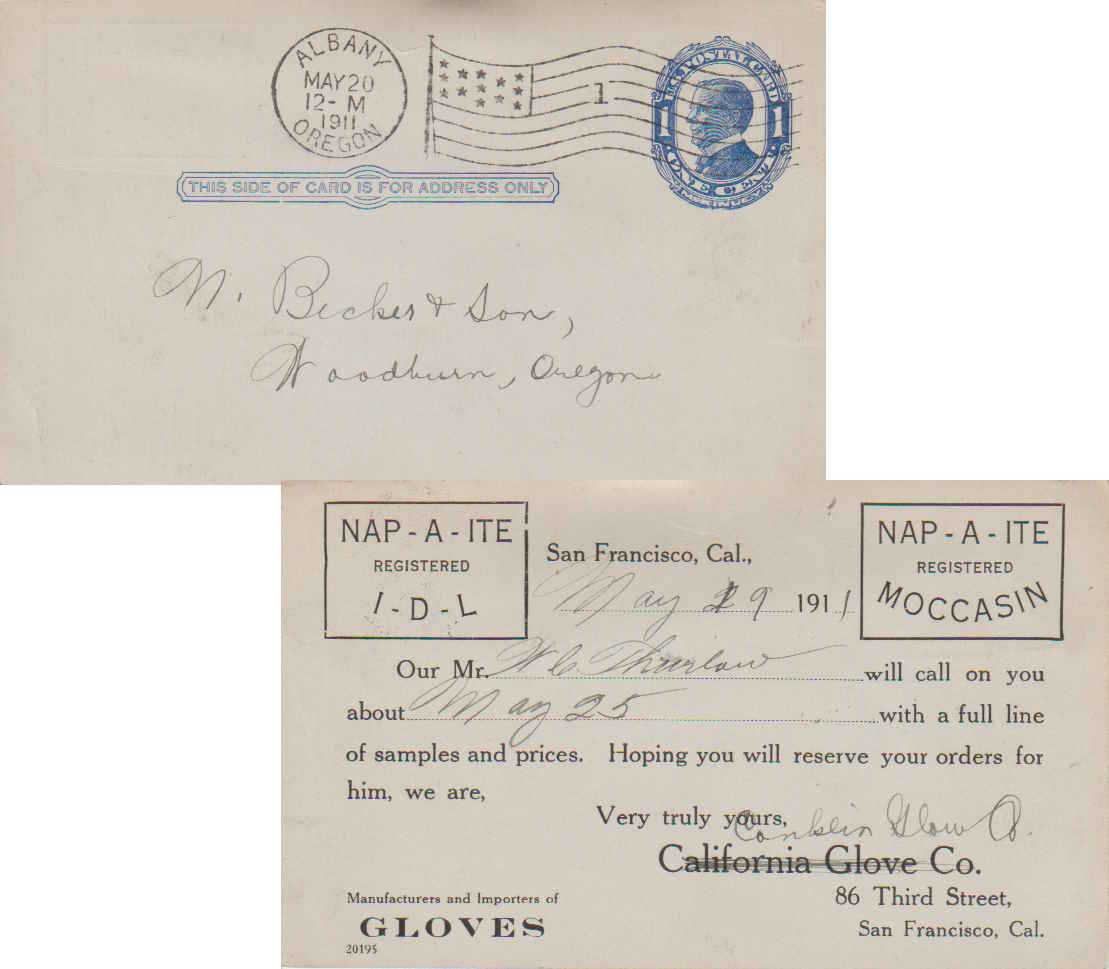 ALBANY
MAY 20
12- M
1911
OREGON
1
U.S. POSTAL CARD
1 1
ONE CENT
THIS SIDE OF CARD IS FOR ADDRESS ONLY
N. Becker & Son,
Woodburn, Oregon
NAP - A - ITE
REGISTERED
I - D - L
San Francisco, Cal.,
May 19 1911
NAP - A - ITE
REGISTERED
MOCCASIN
Our Mr. W C Thurlow will call on you
about May 25 with a full line
of samples and prices. Hoping you will reserve your orders for
him, we are,
Very truly yours,
Conklin Glove Co.
California Glove Co.
86 Third Street,
San Francisco, Cal.
Manufacturers and Importers of
GLOVES
20195